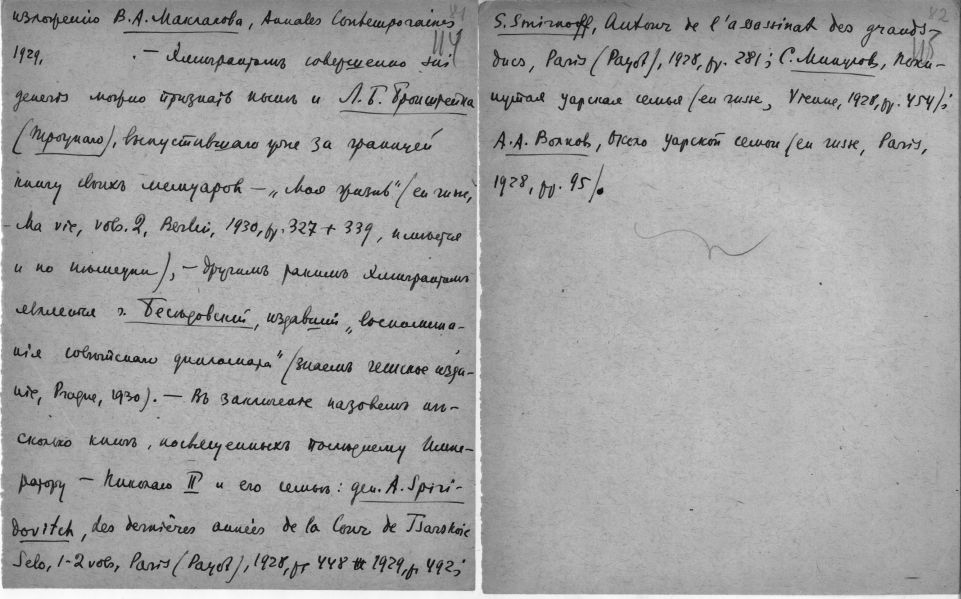 изложенiю В.А. Маклакова, Annales Contemporaines
41
114
1929. — Эмигрантомъ совершенно sui
generis можно признать нынѣ и Л.Б. Бронштейна
(Троцкаго), выпустившаго уже за границей
книгу своихъ мемуаров — „Моя жизнь" (en russe,
Ma vie, vols. 2, Berlin, 1930, pp. 327 + 339, имѣется
и по нѣмецки), — другимъ ранимъ эмигрантомъ
является г. Бесѣдовский, издавший „воспомина-
нiя совѣтскаго дипломата" (знаемъ чешское изда-
нiе, Prague, 1930). — Въ заключенiе назовемъ нѣ-
сколько книгъ, посвященныхъ послѣднему Импе-
ратору — Николаю II и его семьѣ: gen. A. Spiri-
dovitch, des dernières années de la Cour de Tsarskoie
Selo, 1-2 vols, Paris (Payot), 1928, pp 448 1929, p. 492;
42
115
S. Smirnoff, Autour de l'assassinat des grands-
ducs, Paris (Payot), 1928, pp. 281; С. Минцлов,
нутая царская семья (en russe, Vienne, 1928, pp. 454);
А.А. Волков, Около царской семьи (en russe, Paris,
1928, pp. 95).